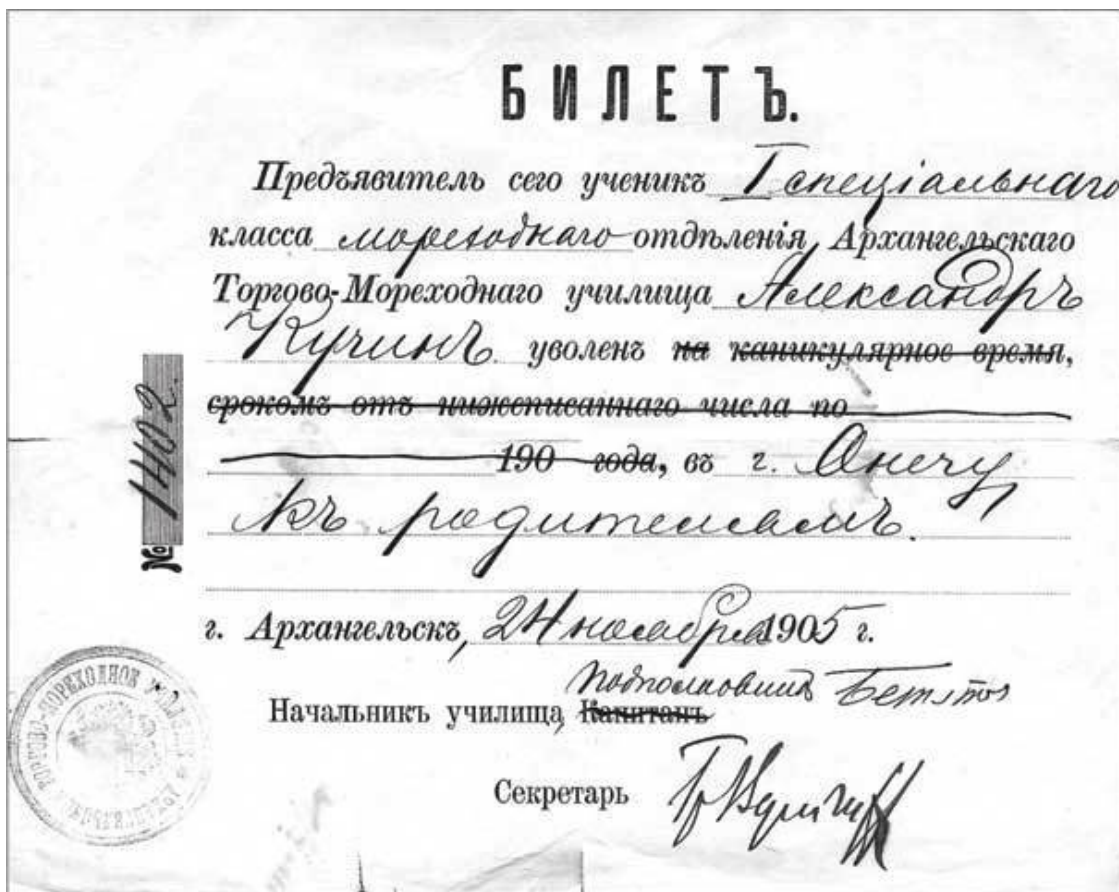 БИЛЕТЪ.
Предъявитель сего ученикъ I спеціальнаго
класса мореходнаго отдѣленія Архангельскаго
Торгово-Мореходнаго училища Александръ
Кучинъ уволенъ на каникулярное время,
срокомъ отъ нижеписаннаго числа по
190 года, въ г. Онегу
къ родителямъ.
г. Архангельскъ, 24 ноября 1905 г.
Подполковникъ
Начальникъ училища, Капитанъ
Секретарь
№ 1402.
АРХАНГЕЛЬСКОЕ ТОРГОВО-МОРЕХОДНОЕ УЧИЛИЩЕ